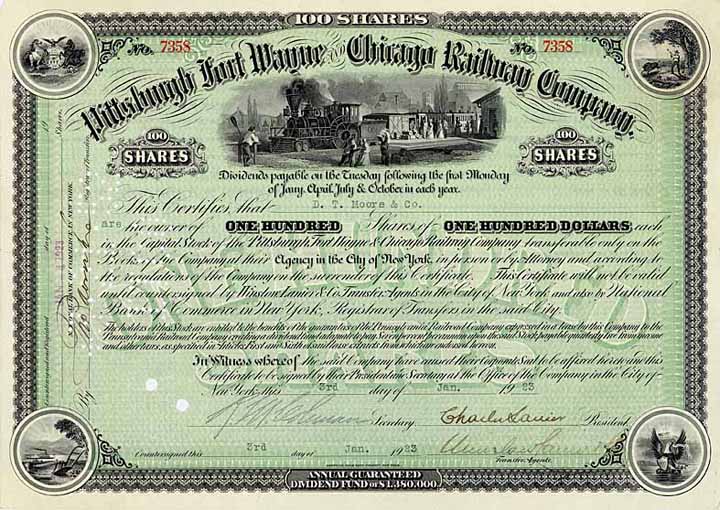 100 SHARES
No. 7358
No. 7358
Pittsburgh Fort Wayne and Chicago Railway Company.
100 SHARES
100 SHARES
Dividends payable on the Tuesday following the first Monday
of Jany. April, July & October in each year.
This Certifies that D. T. Moore & Co.
are the owner of ONE HUNDRED Shares of ONE HUNDRED DOLLARS each
in the Capital Stock of the Pittsburgh, Fort Wayne & Chicago Railway Company, transferable only on the
Books of the Company at their Agency in the City of New York, in person or by Attorney and according to
the regulations of the Company on the surrender of this Certificate. This Certificate will not be valid
until countersigned by Winslow, Lanier & Co. Transfer Agents in the City of New York and also by National
Bank of Commerce in New York, Registrar of Transfers in the said City.
The holders of this Stock are entitled to the benefits of the guarantee of the Pennsylvania Railroad Company expressed in a lease by this Company to the
Pennsylvania Railroad Company creating a dividend fund adequate to pay Seven per cent per annum upon the said Stock, payable quarterly, free from income
and other taxes, as specified in
In Witness whereof the said Company have caused their Corporate Seal to be affixed hereto and this
certificate to be signed by their President and Secretary at the Office of the Company in the City of
New York, this 3rd day of Jan. 1923
Secretary. Charles Lanier President.
Countersigned this 3rd day of Jan. 1923
Transfer Agents.
ANNUAL GUARANTEED
DIVIDEND FUND OF $1,380,000.
Countersigned and Registered
JAN 4 1923
NATIONAL BANK OF COMMERCE IN NEW YORK
By
Shares.